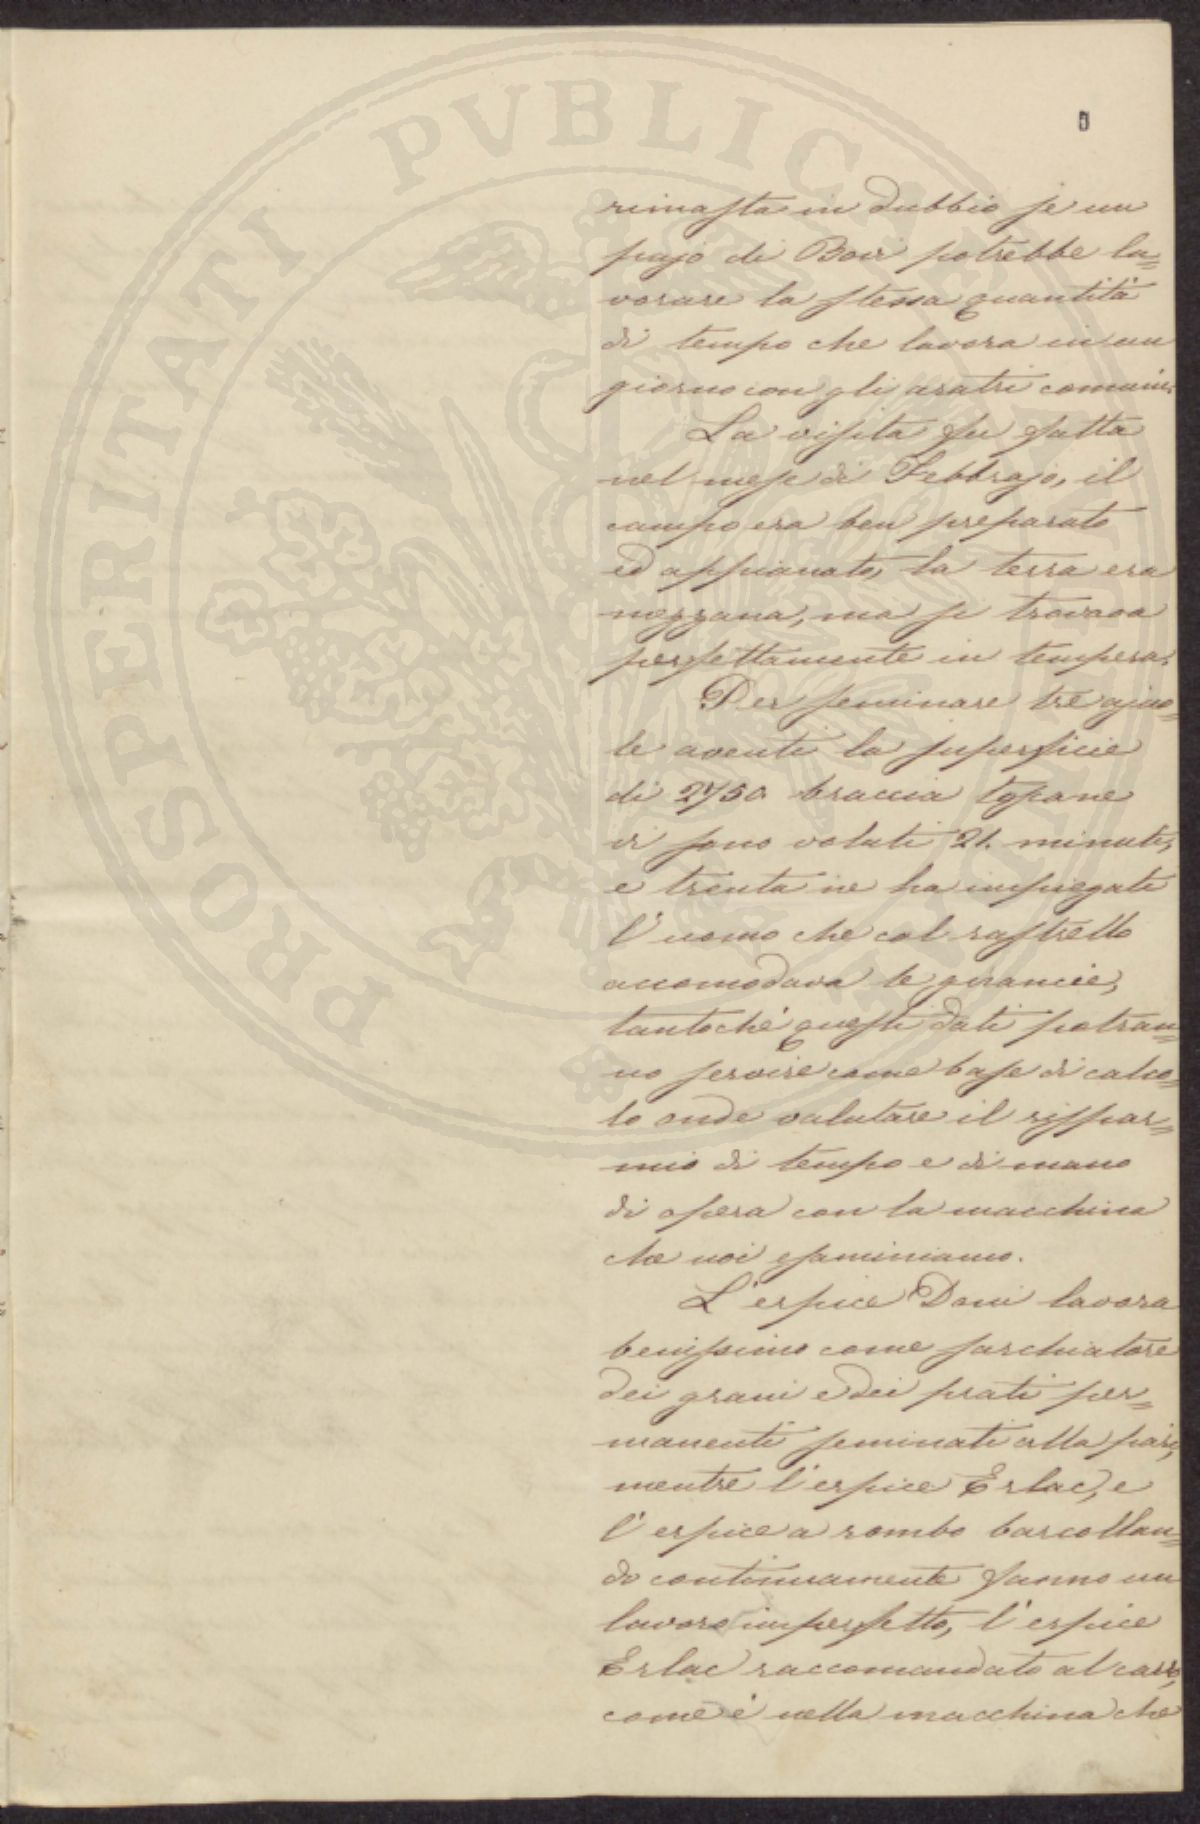 PROSPERITATI PUBLICAE AUGENDAE
rimasta in dubbio se un
pajo di Bovi potrebbe la=
vorare la stessa quantità
di tempo che lavora in un
giorno con gli aratri comuni.
La visita fu fatta
nel mese di Febbrajo, il
campo era ben preparato
ed appianato, la terra era
mezzana, ma si trovava
perfettamente in tempera.
Per seminare tre ajuo=
le aventi la superficie
di 2750 braccia tosane
vi sono voluti 21. minuti,
e trenta ne ha impiegati
l'uomo che col rastrello
accomodava le guancie,
tantochè questi dati potran=
no servire come base di calco=
lo onde valutare il rispar=
mio di tempo e di mano
di opera con la macchina
che noi esaminiamo.
L'erpice Doni lavora
benissimo come sarchiatore
dei grani e dei prati per=
manenti seminati alla pari,
mentre l'erpice Erlac, e
l'erpice a rombo barcollan=
do continuamente fanno un
lavoro imperfetto, l'erpice
Erlac raccomandato al carro,
come è nella macchina che